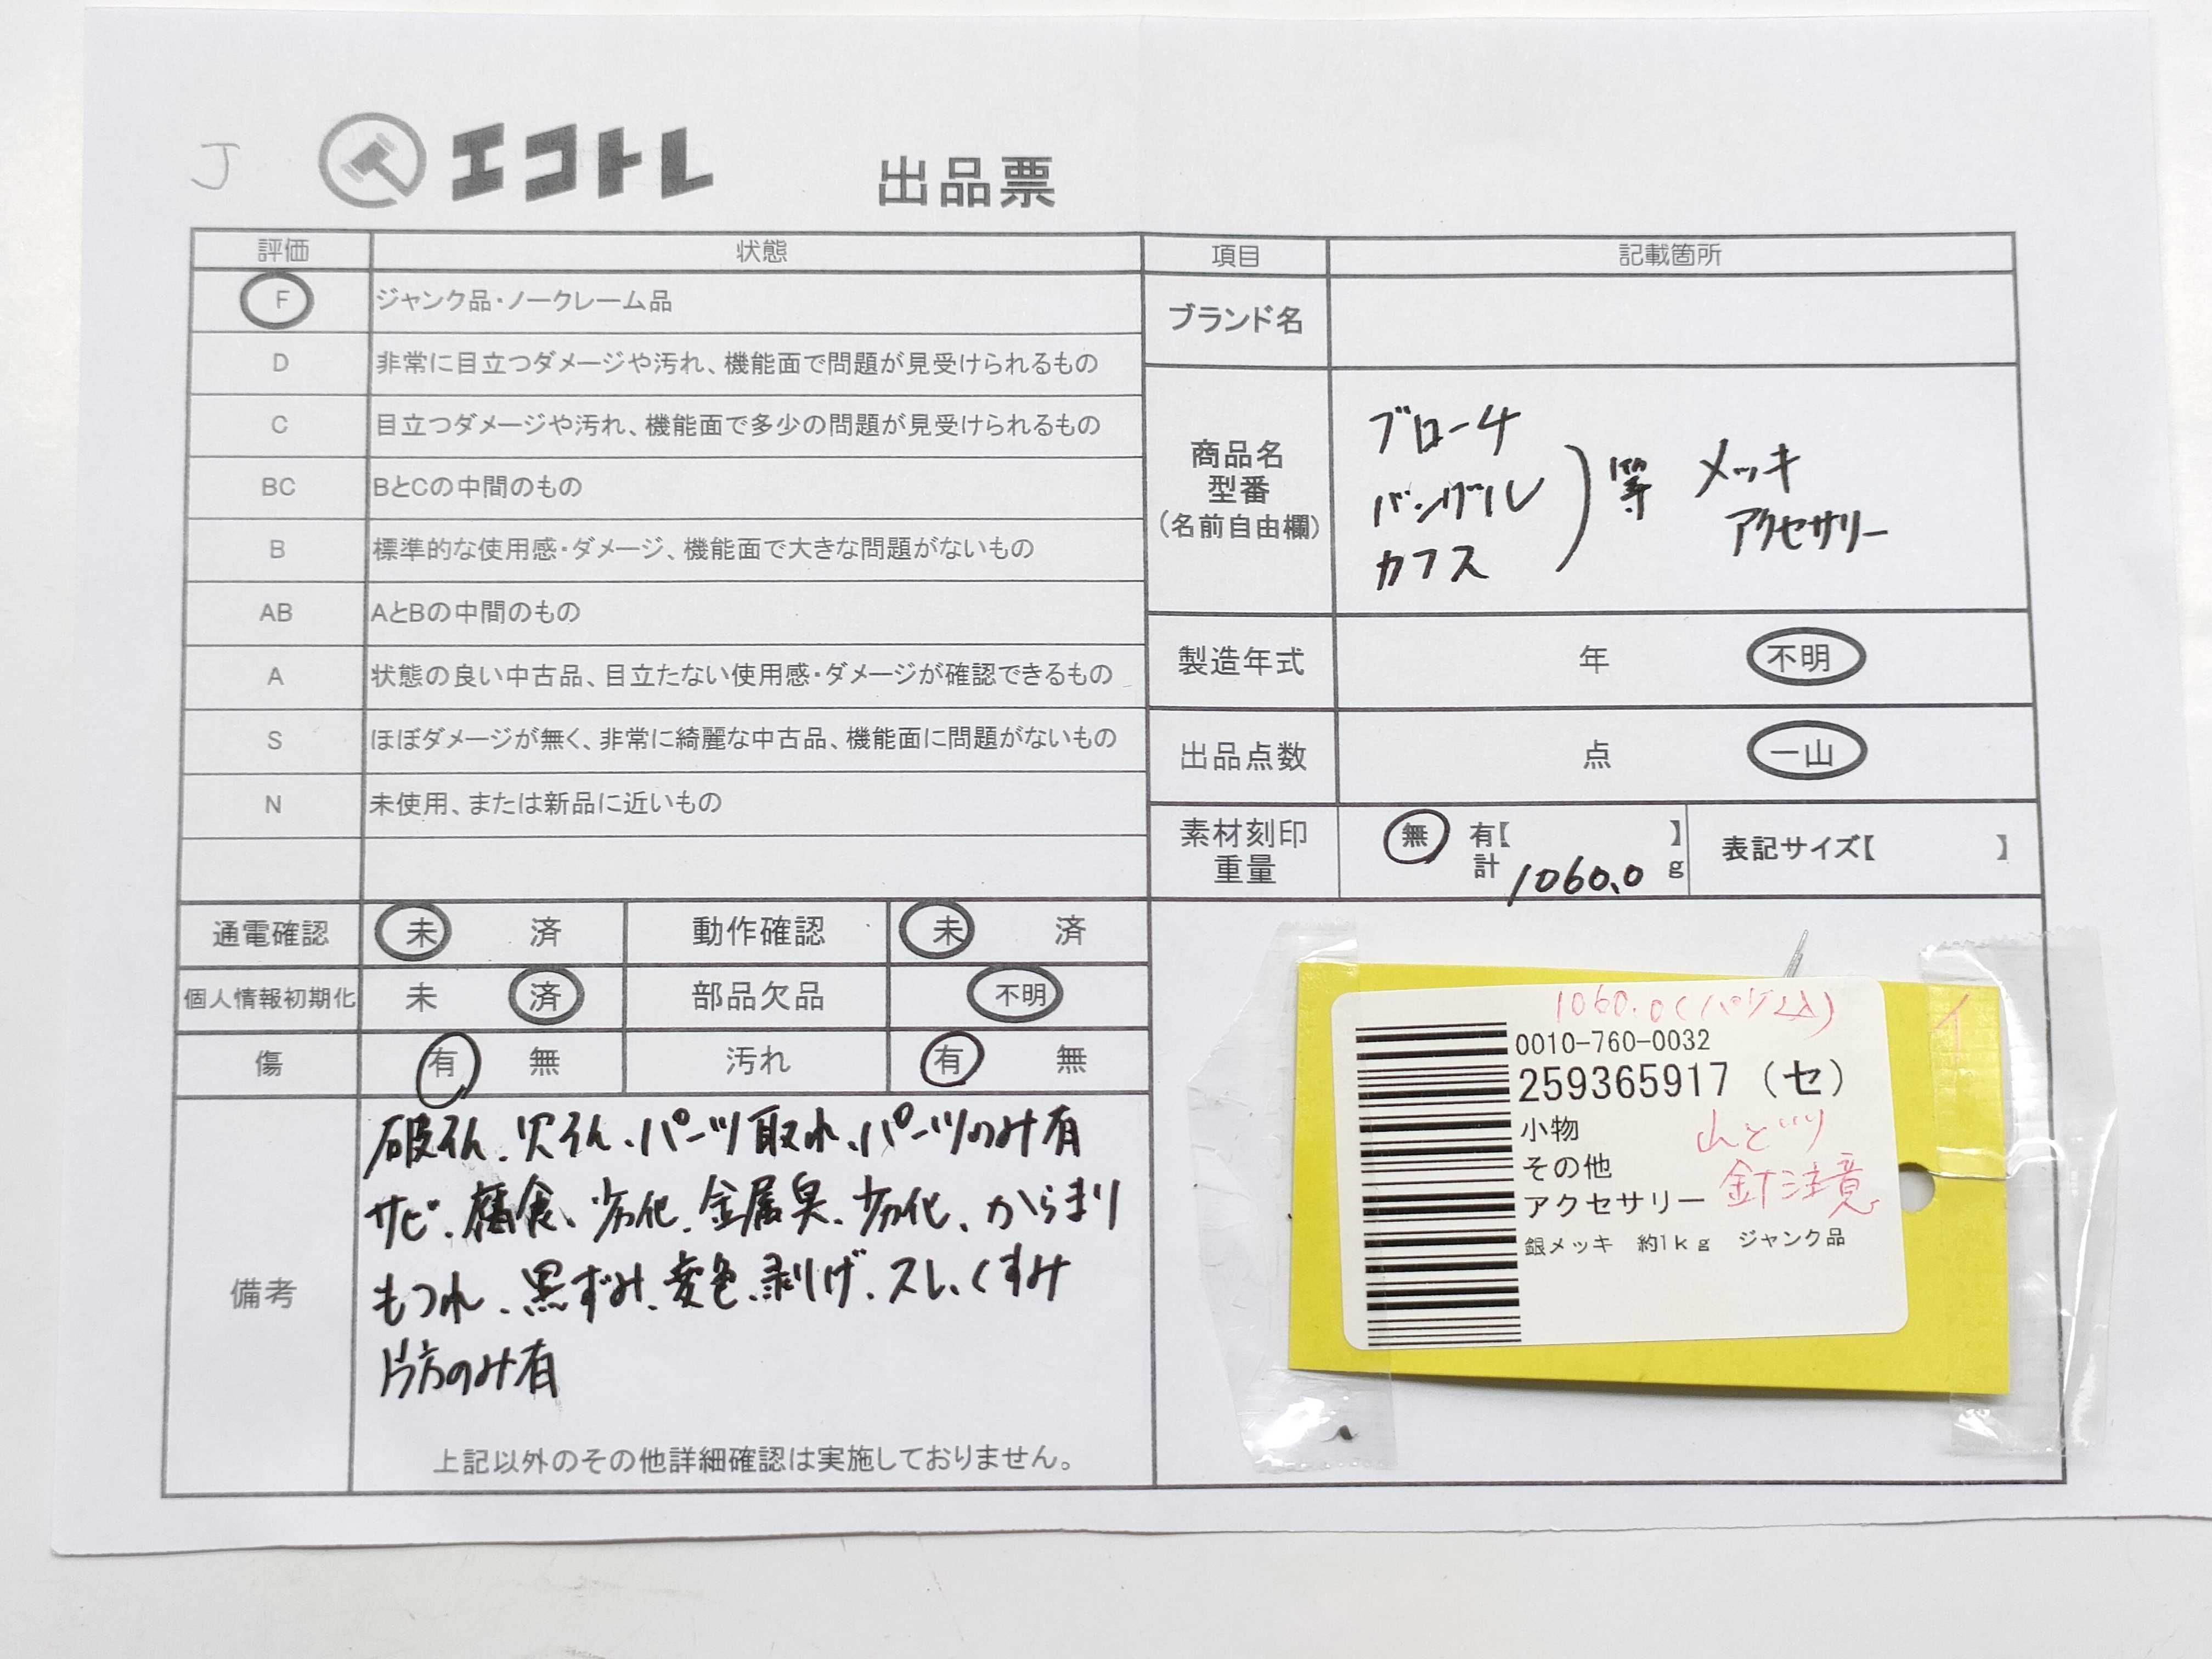 J
エコトレ 出品票
評価 状態
F ジャンク品・ノークレーム品
D 非常に目立つダメージや汚れ、機能面で問題が見受けられるもの
C 目立つダメージや汚れ、機能面で多少の問題が見受けられるもの
BC BとCの中間のもの
B 標準的な使用感・ダメージ、機能面で大きな問題がないもの
AB AとBの中間のもの
A 状態の良い中古品、目立たない使用感・ダメージが確認できるもの
S ほぼダメージが無く、非常に綺麗な中古品、機能面に問題がないもの
N 未使用、または新品に近いもの
通電確認 未 済 動作確認 未 済
個人情報初期化 未 済 部品欠品 不明
傷 有 無 汚れ 有 無
備考
破そん、欠そん、パーツ取れ、パーツのみ有
サビ、腐食、劣化、金属臭、劣化、からまり
もつれ、黒ずみ、変色、剥げ、スレ、くすみ
片方のみ有
上記以外のその他詳細確認は実施しておりません。
項目 記載箇所
ブランド名
商品名
型番
(名前自由欄)
ブローチ
バングル
カフス
等 メッキ
アクセサリー
製造年式 年 不明
出品点数 点 一山
素材刻印
重量
無 有【 】
計 1060.0 g
表記サイズ【 】
1060.0
イ
0010-760-0032
259365917 (セ)
小物
その他
アクセサリー
針注意
銀メッキ 約1kg ジャンク品